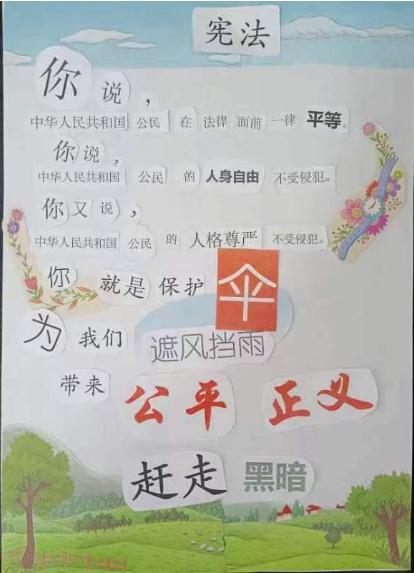 宪法
你说，
中华人民共和国 公民 在 法律 面前 一律 平等。
你说，
中华人民共和国 公民 的 人身自由 不受侵犯。
你又说，
中华人民共和国 公民 的 人格尊严 不受侵犯。
你 就是 保护 伞
为 我们 遮风挡雨
带来 公平 正义
赶走 黑暗